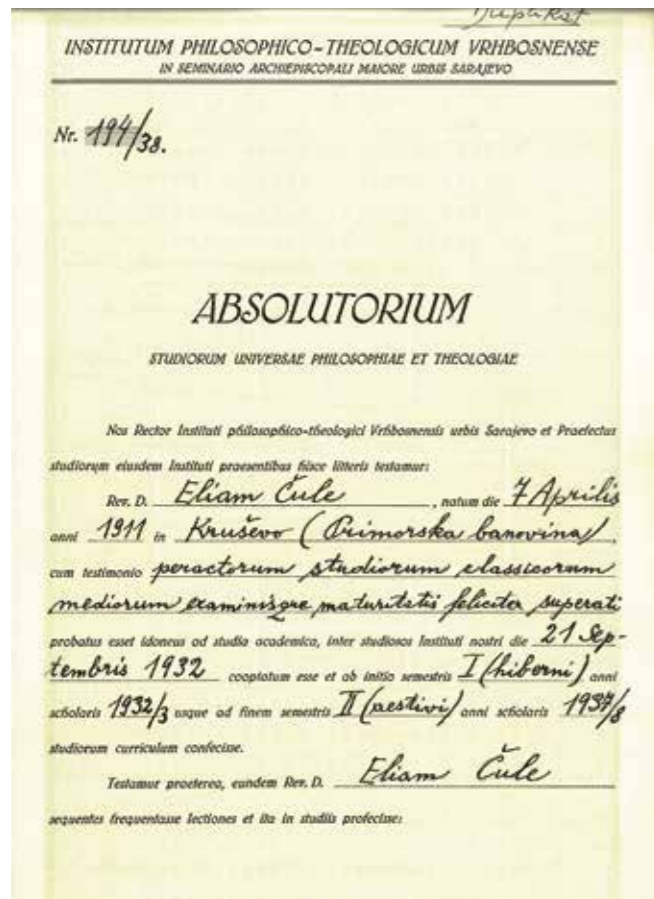 Duplikat
INSTITUTUM PHILOSOPHICO-THEOLOGICUM VRHBOSNENSE
IN SEMINARIO ARCHIEPISCOPALI MAIORE URBIS SARAJEVO
Nr. 194/38.
ABSOLUTORIUM
STUDIORUM UNIVERSAE PHILOSOPHIAE ET THEOLOGIAE
Nos Rector Instituti philosophico-theologici Vrhbosnensis urbis Sarajevo et Praefectus
studiorum eiusdem Instituti praesentibus hisce litteris testamur:
Rev. D. Eliam Čule, natum die 7 Aprilis
anni 1911 in Kruševo (Primorska banovina)
cum testimonio peractorum studiorum classicorum
mediorum examinisque maturitatis feliciter superati
probatus esset idoneus ad studia academica, inter studiosos Instituti nostri die 21 Sep-
tembris 1932 cooptatum esse et ab initio semestris I (hiberni) anni
scholaris 1932/3 usque ad finem semestris II (aestivi) anni scholaris 1937/8
studiorum curriculum confecisse.
Testamur praeterea, eundem Rev. D. Eliam Čule
sequentes frequentasse lectiones et ita in studiis profecisse: